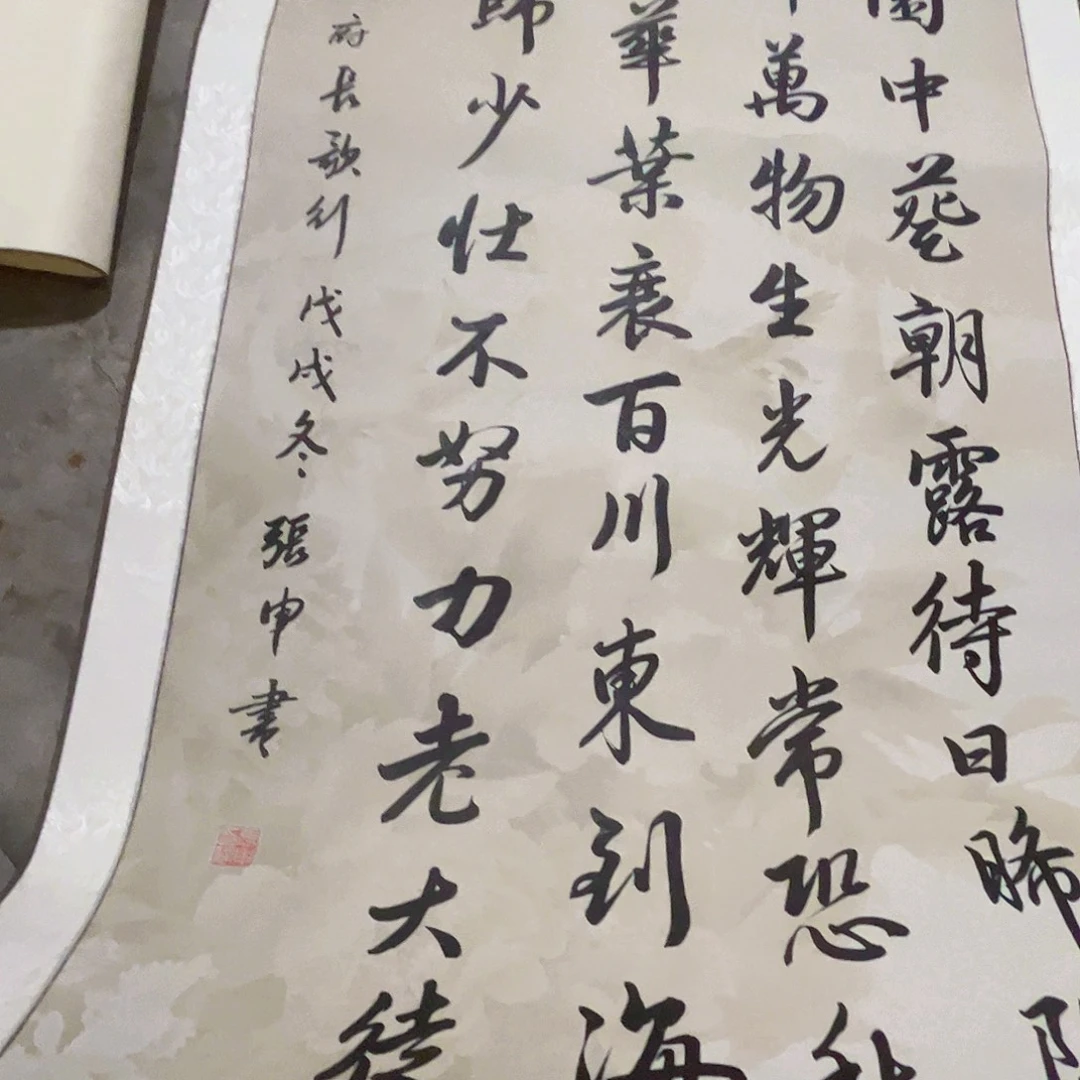 園中葵朝露待日晞陽
萬物生光輝常恐秋
華葉衰百川東到海
歸少壯不努力老大徒
府長歌行戊戌冬張申書